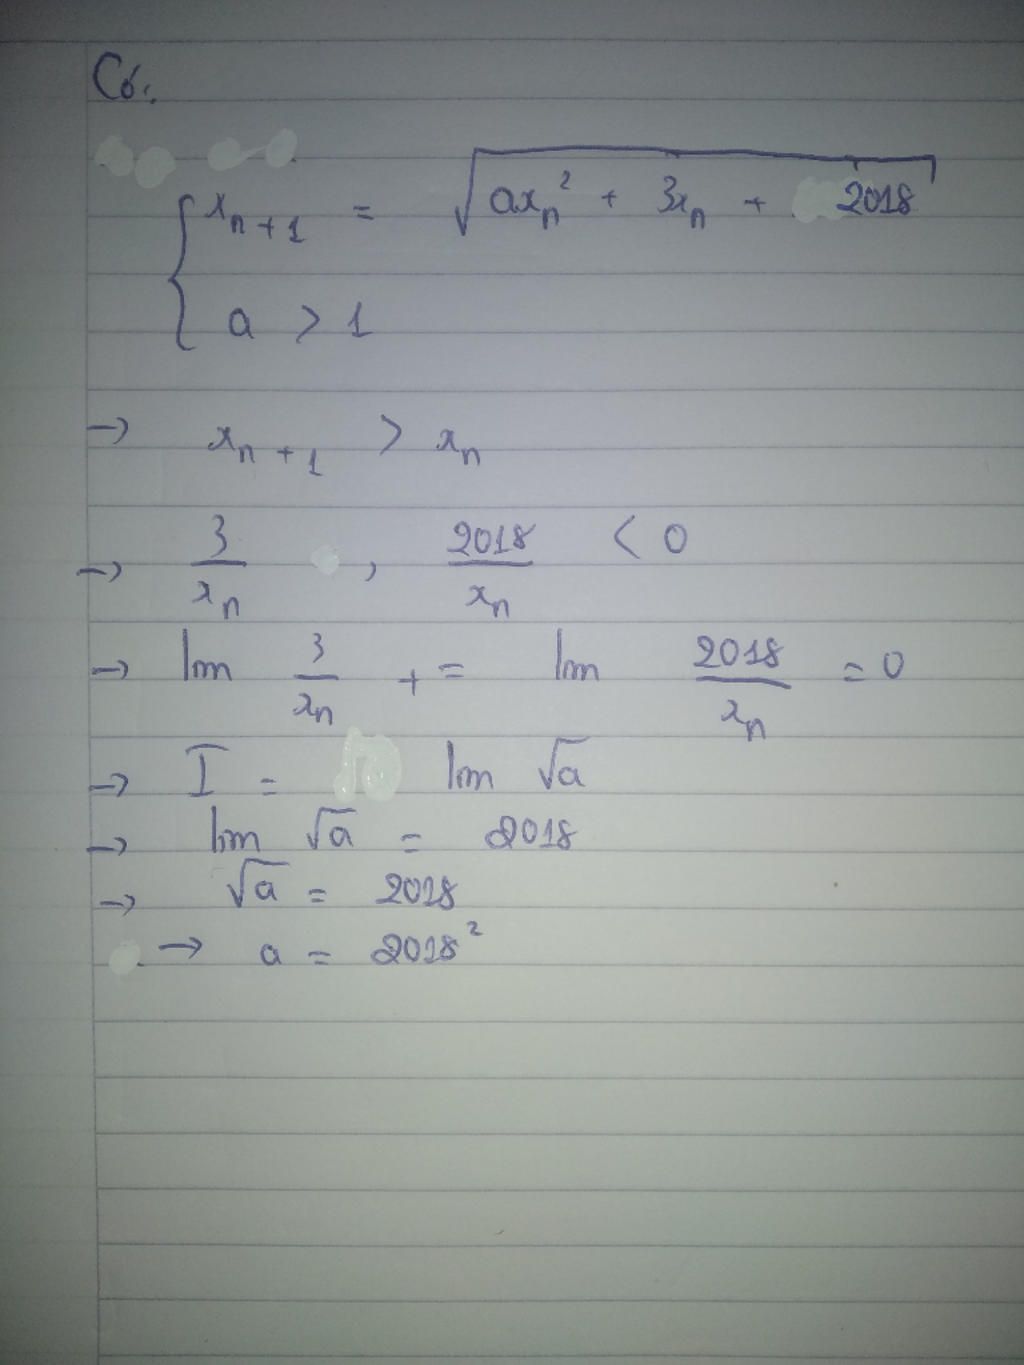 Có:
x_{n+1} = √(ax_n² + 3x_n + 2018)
a > 1
→ x_{n+1} > x_n
→ 3/x_n , 2018/x_n < 0
→ lim 3/x_n + = lim 2018/x_n = 0
→ I = lim √a
→ lim √a = 2018
→ √a = 2018
→ a = 2018²